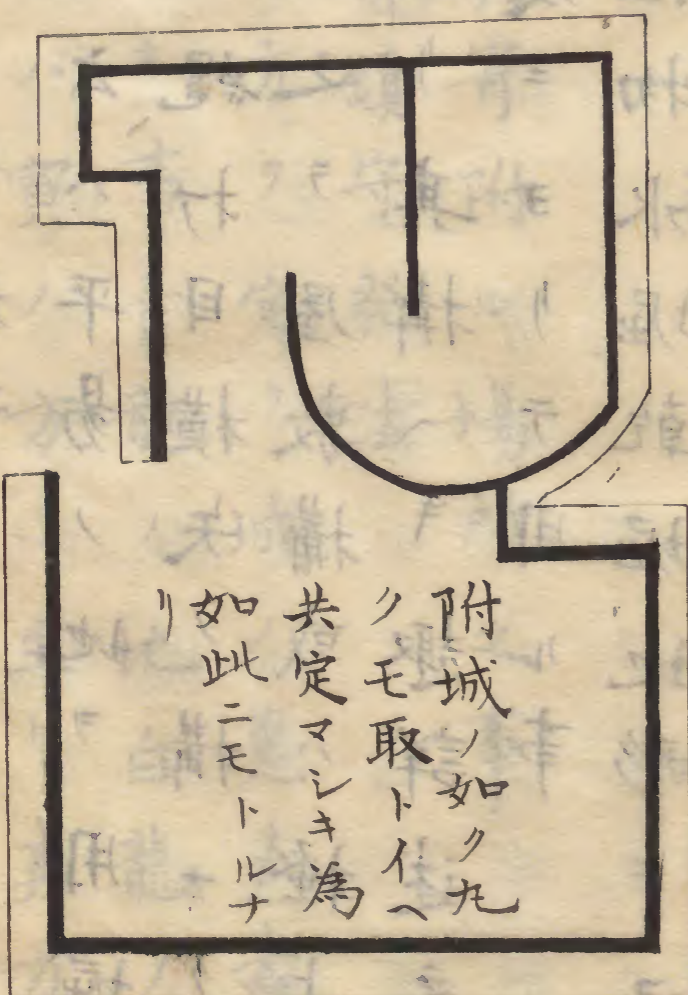 附城ノ如ク丸
クモ取トイヘ
共定マシキ為
如此ニモトルナ
リ